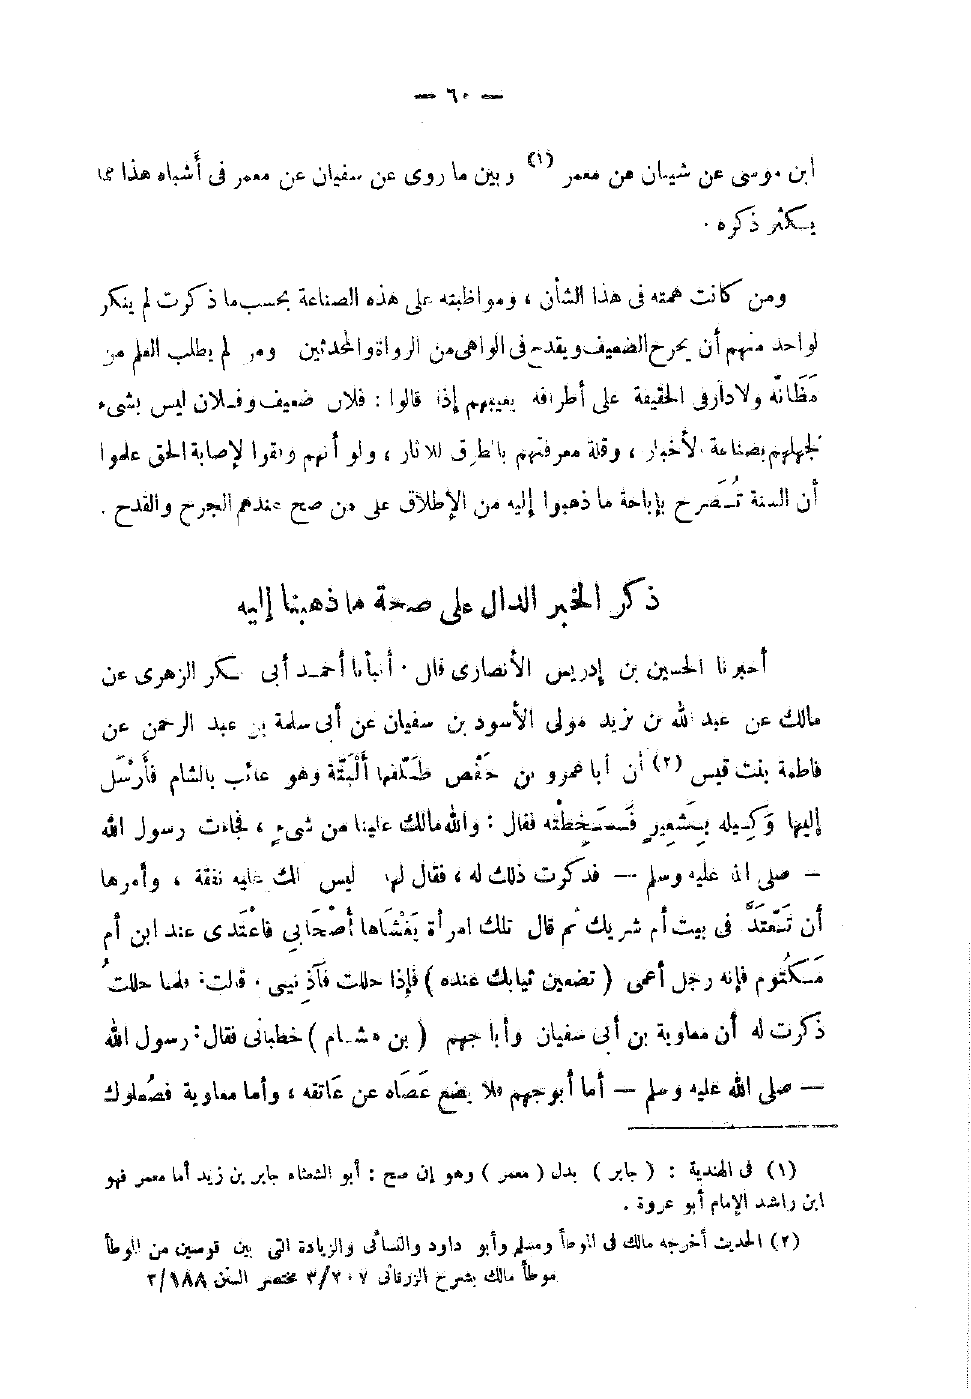 — ٦٠ —
ابن موسى عن شيبان عن معمر (١) وبين ما روى عن سفيان عن معمر فى أشباه هذا مما
يكثر ذكره .
ومن كانت همته فى هذا الشأن ، ومواظبته على هذه الصناعة بحسب ما ذكرت لم ينكر
لواحد منهم أن يجرح الضعيف ويقدح فى الواهى من الرواة والمحدثين ومن لم يطلب العلم من
مَظَانّه ولا دار فى الحقيقة على أطرافه يعيبهم إذا قالوا : فلان ضعيف وفلان ليس بشىء
لجهلهم بصناعة الأخبار ، وقلة معرفتهم بالطرق للآثار ، ولو أنهم وفقوا لإصابة الحق علموا
أن السنة تُصَرح بإباحة ما ذهبوا إليه من الإطلاق على من صح عندهم الجرح والقدح .
ذكر الخبر الدال على صحة ما ذهبنا إليه
أخبرنا الحسين بن إدريس الأنصارى قال . أنبأنا أحمد أبى بكر الزهرى عن
مالك عن عبد الله بن يزيد مولى الأسود بن سفيان عن أبى سلمة بن عبد الرحمن عن
فاطمة بنت قيس (٢) أن أبا عمرو بن حَفْص طَلَّقها أَلْبَتَّة وهو غائب بالشام فأَرْسَل
إليها وَكِيله بِشَعِيرٍ فَسَخِطْته فقال : والله مالك علينا من شىءٍ ، فجاءت رسول الله
— صلى الله عليه وسلم — فذكرت ذلك له ، فقال لها ليس لك عليه نفقة ، وأمرها
أن تَعْتَدَّ فى بيت أم شريك ثم قال تلك امرأة يَغْشَاها أصْحَابِي فاعْتَدى عند ابن أم
مَكْتُوم فإنه رجل أعمى ( تضعين ثيابك عنده ) فإذا حللت فَآذِنينى . قالت : فلما حللتُ
ذكرت له أن معاوية بن أبى سفيان وأبا جهم ( بن هشام ) خطبانى فقال : رسول الله
— صلى الله عليه وسلم — أما أبو جهم فلا يضع عَصَاه عن عَاتقه ، وأما معاوية فصُعلوك
(١) فى الهندية : ( جابر ) بدل ( معمر ) وهو إن صح : أبو الشعثاء جابر بن زيد أما معمر فهو
ابن راشد الإمام أبو عروة .
(٢) الحديث أخرجه مالك فى الموطأ ومسلم وأبو داود والنسائى والزيادة التى بين قوسين من الموطأ
موطأ مالك بشرح الزرقانى ٣/٢٠٧ مختصر السنن ٣/١٨٨